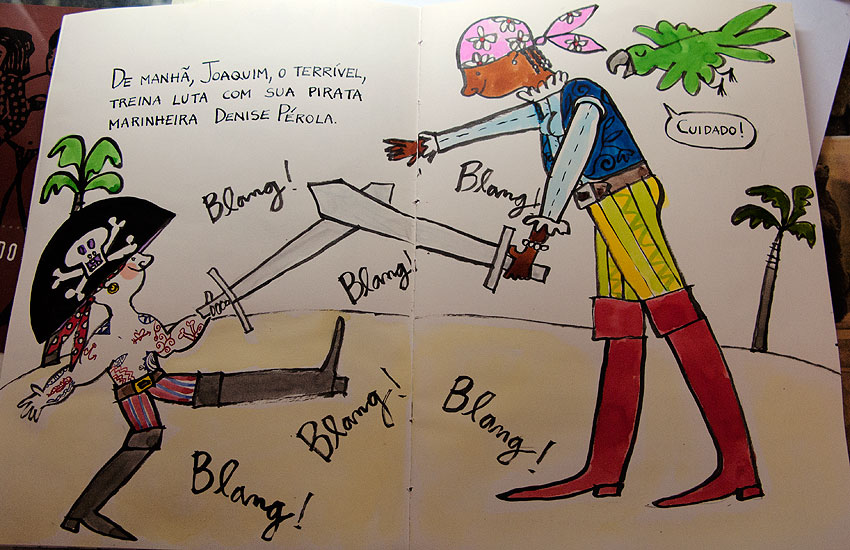 DE MANHÃ, JOAQUIM, O TERRÍVEL,
TREINA LUTA COM SUA PIRATA
MARINHEIRA DENISE PÉROLA.
CUIDADO!
Blang!
Blang!
Blang!
Blang!
Blang!
Blang!